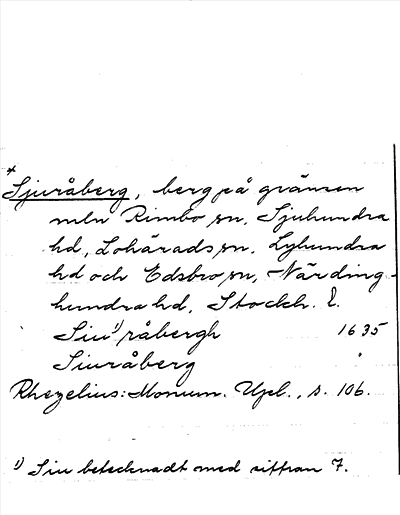 *
Sjuråberg, berg på gränsen
mln Rimbo sn, Sjuhundra
hd, Lohärads sn, Lyhundra
hd och Edsbro sn, Närding-
hundra hd, Stockh. l.
Siu¹⁾råbergh 1635
Siuråberg "
Rhezelius: Monum. Upl., s. 106.
¹⁾ Siu betecknadt med siffran 7.